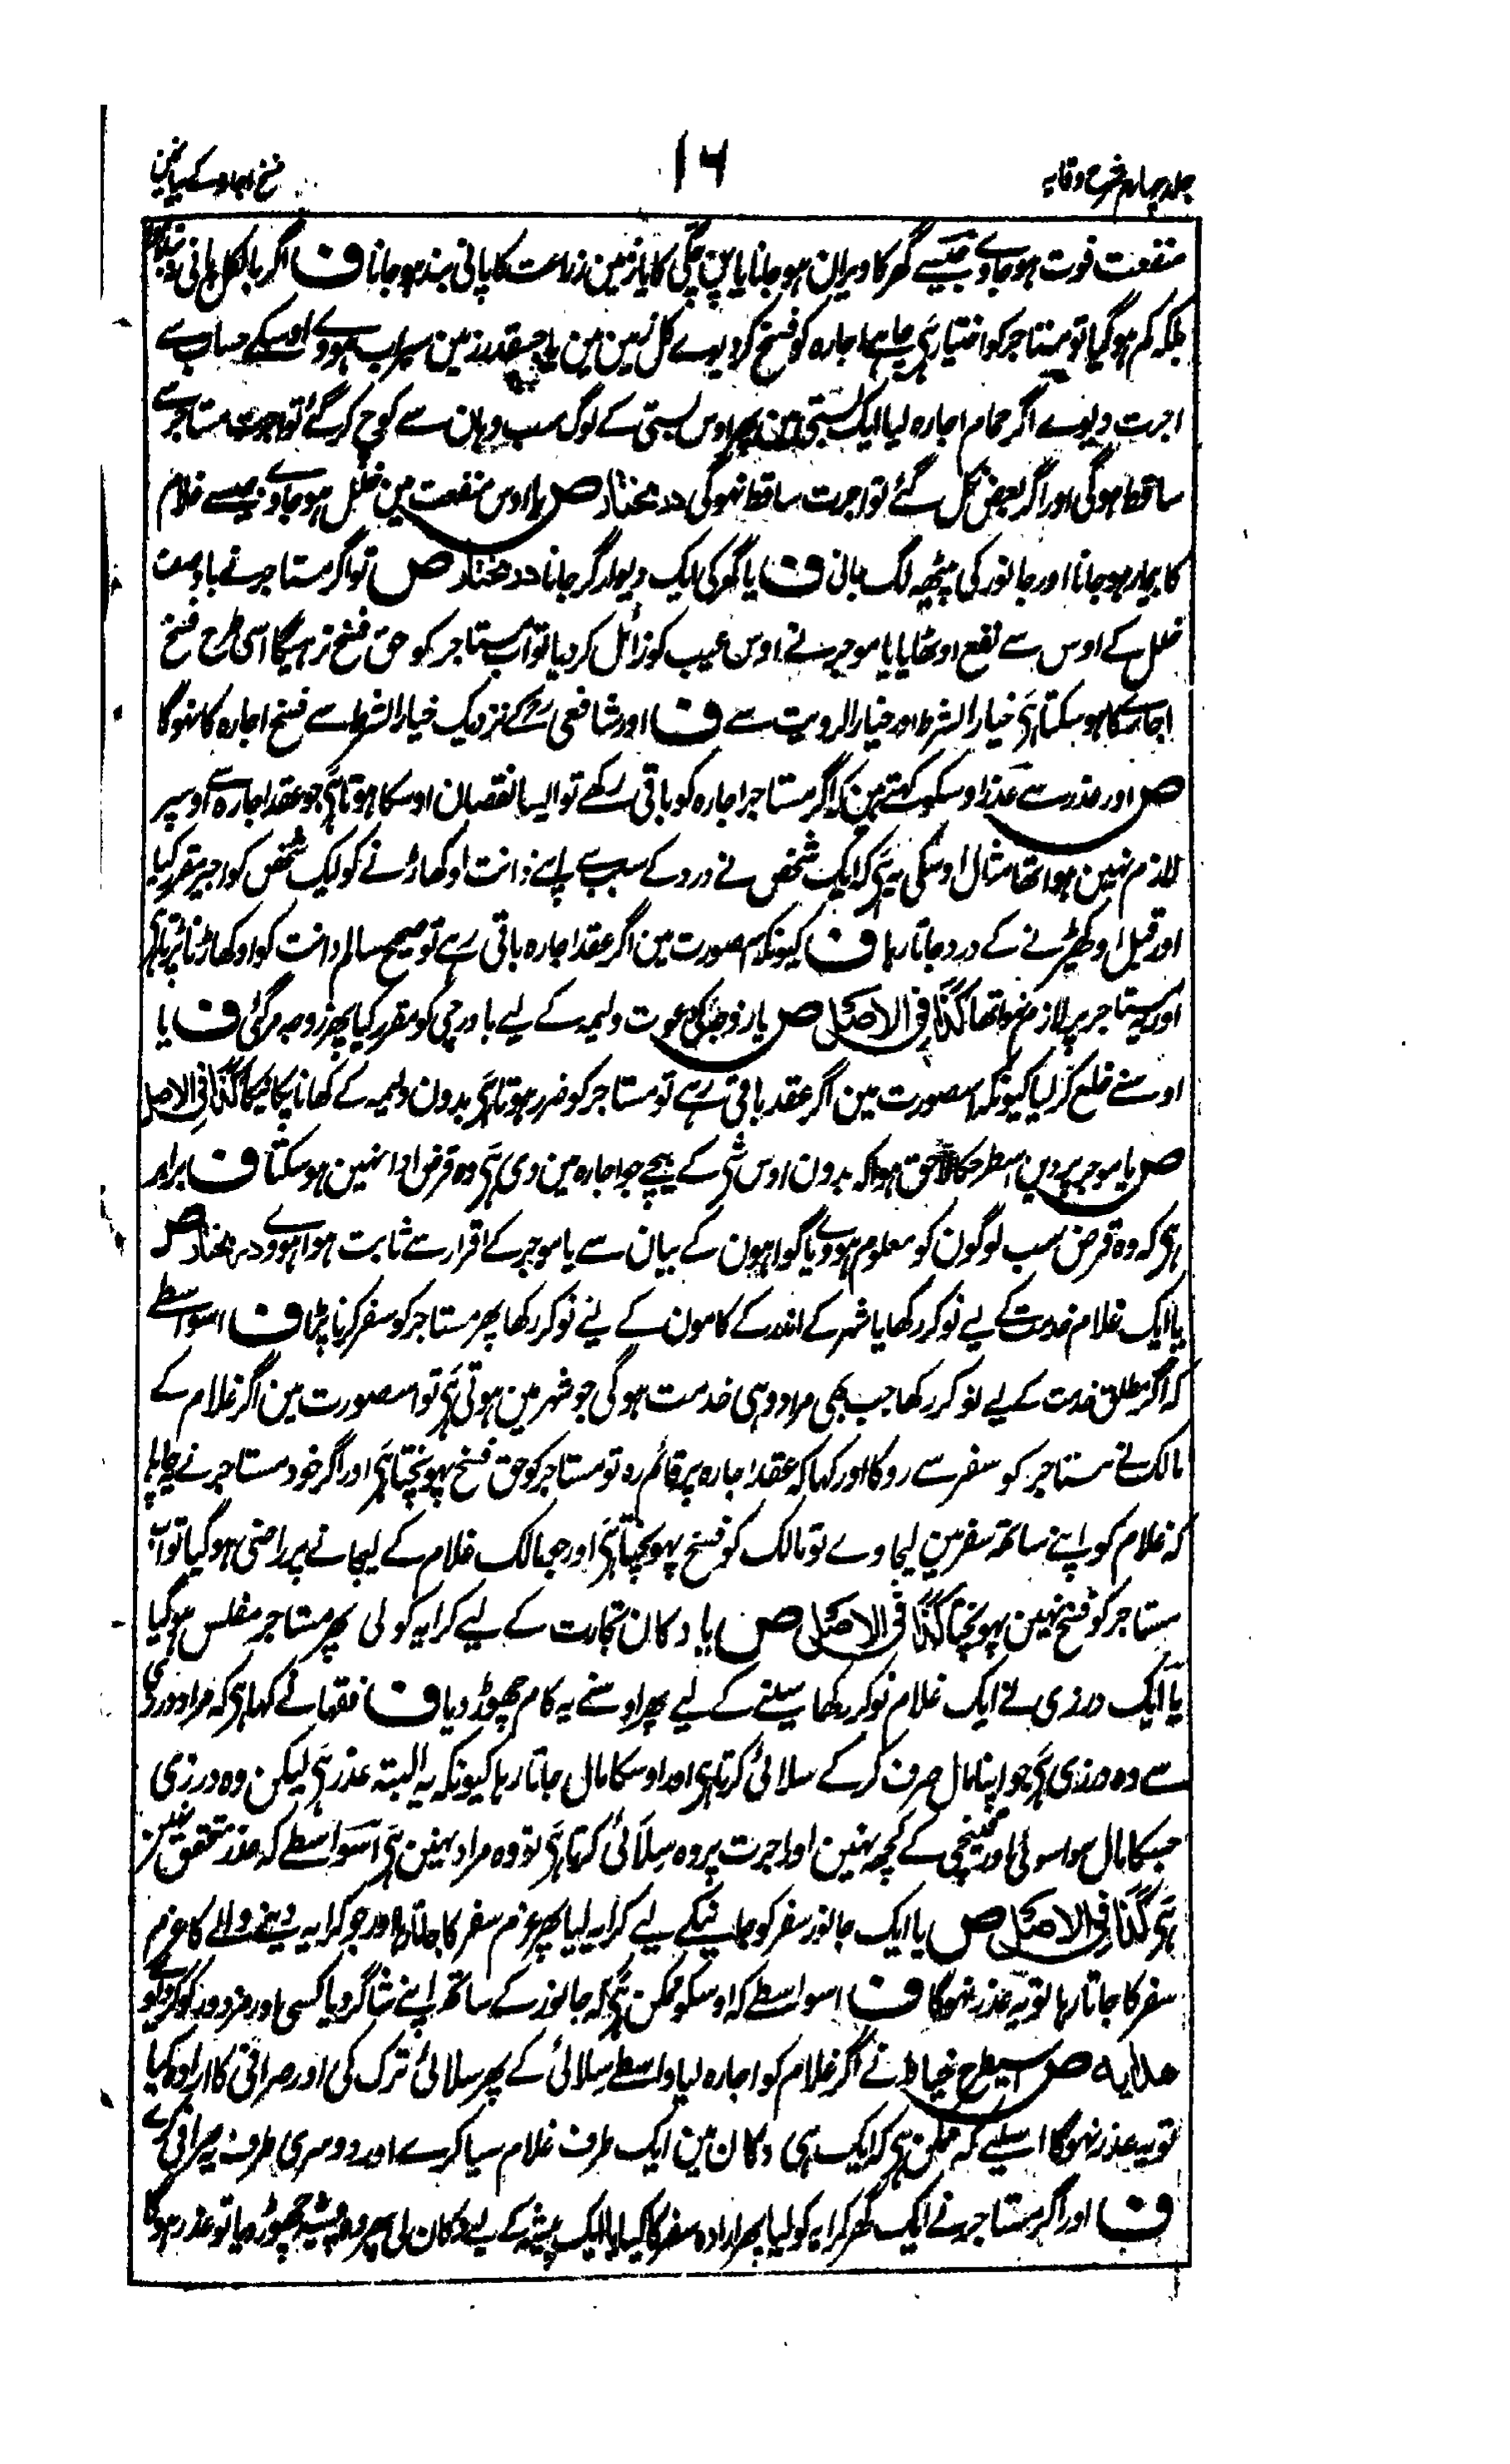 جلد چہارم شرح وقایہ
۱۶
فسخ اجارہ کے بیانمین
منفعت فوت ہو جاوے جیسے گھر کا ویران ہو جانا یا پن چکی کا یا زمین زراعت کا پانی بند ہو جانا ف اگر بالکل پانی بند نہ ہو
بلکہ کم ہو گیا تو مستاجر کو اختیار ہی چاہے اجارہ کو فسخ کر دیوے کل زمین مین یا جسقدر زمین سیراب ہووے اوسکے حساب سے
اجرت دیوے اگر حمام اجارہ لیا ایک بستی مین پھر اوس بستی کے لوگ سب وہان سے کوچ کر گئے تو اجرت مستاجر سے
ساقط ہوگی اور اگر بعض نکل گئے تو اجرت ساقط نہوگی درمختار ص یا اوس منفعت مین خلل ہو جاوے جیسے غلام
کا بیمار ہو جانا اور جانور کی پیٹھہ لگ جانی ف یا گھر کی ایک دیوار گر جانا درمختار ص تو اگر مستاجر نے باوصف
خلل کے اوس سے نفع اوٹھایا یا موجر نے اوس عیب کو زائل کر دیا تو اب مستاجر کو حق فسخ نرہیگا اسی طرح فسخ
اجارے کا ہو سکتا ہی خیار الشرط اور خیار الرویت سے ف اور شافعی رح کے نزدیک خیار الشرط سے فسخ اجارہ کا نہوگا
ص اور عذر سے عذر اوسکو کہتے ہین کہ اگر مستاجر اجارہ کو باقی رکھے تو ایسا نقصان اوسکا ہوتا ہی جو عقد اجارہ سے اوسپر
لازم نہین ہوا تھا مثال اوسکی یہ ہی کہ ایک شخص نے درد کے سبب سے اپنے دانت اوکھاڑنے کو ایک شخص کو اجیر مقرر کیا
اور قبل اوکھیڑنے کے درد جاتا رہا ف کیونکہ اسصورت مین اگر عقد اجارہ باقی رہے تو صحیح سالم دانت کو اوکھاڑنا پڑتا ہی
اور یہ مستاجر پر لازم نہوا تھا کذا فی الاصل ص یا زوجہ کی دعوت ولیمہ کے لیے باورچی کو مقرر کیا پھر زوجہ مر گئی ف یا
اوسنے خلع کر لیا کیونکہ اسصورت مین اگر عقد باقی رہے تو مستاجر کو ضرر ہوتا ہی بدون ولیمہ کے کھانا پکانیکا کذا فی الاصل
ص یا موجر پر دین اسطرحکا لاحق ہوا کہ بدون اوس شی کے بیچے جو اجارہ مین دی ہی وہ قرض ادا نہین ہو سکتا ف برابر
ہی کہ وہ قرض سب لوگون کو معلوم ہووے یا گواہون کے بیان سے یا موجر کے اقرار سے ثابت ہوا ہووے درمختار ص
یا ایک غلام خدمت کے لیے نوکر رکھا یا شہر کے اندر کے کامون کے لیے نوکر رکھا پھر مستاجر کو سفر کرنا پڑا ف اسواسطے
کہ اگر مطلق خدمت کے لیے نوکر رکھا جب بھی مراد وہی خدمت ہوگی جو شہر مین ہوتی ہی تو اسصورت مین اگر غلام کے
مالک نے مستاجر کو سفر سے روکا اور کہا کہ عقد اجارہ پر قائم رہ تو مستاجر کو حق فسخ پہونچتا ہی اور اگر خود مستاجر نے چاہا
کہ غلام کو اپنے ساتھہ سفر مین لیجاوے تو مالک کو فسخ پہونچتا ہی اور جب مالک غلام کے لیجانے پر راضی ہو گیا تو اب
مستاجر کو فسخ نہین پہونچتا کذا فی الاصل ص یا دکان تجارت کے لیے کرایہ کو لی پھر مستاجر مفلس ہو گیا
یا ایک درزی نے ایک غلام نوکر رکھا سینے کے لیے پھر اوسنے یہ کام چھوڑ دیا ف فقہا نے کہا ہی کہ مراد درزی
سے وہ درزی ہی جو اپنا مال صرف کر کے سلائی کرتا ہی اور اوسکا مال جاتا رہا کیونکہ یہ البتہ عذر ہی لیکن وہ درزی
جسکا مال سوا سوئی اور قینچی کے کچھہ نہین اور اجرت پر وہ سلائی کرتا ہی تو وہ مراد نہین ہی اسواسطے کہ عذر متحقق نہین
ہی کذا فی الاصل ص یا ایک جانور سفر کو جانیکے لیے کرایہ لیا پھر عزم سفر کا جاتا رہا اور جو کرایہ دینے والے کا عزم
سفر کا جاتا رہا تو یہ عذر نہوگا ف اسواسطے کہ اوسکو ممکن ہی کہ جانور کے ساتھہ اپنے شاگرد یا کسی اور مزدور کو کر دیوے
ھدایہ ص اسیطرح خیاط نے اگر غلام کو اجارہ لیا واسطے سلائی کے پھر سلائی ترک کی اور صرافی کا ارادہ کیا
تو یہ عذر نہوگا اسلیے کہ ممکن ہی کہ ایک ہی دکان مین ایک طرف غلام سیا کرے اور دوسری طرف یہ صرافی کرے
ف اور اگر مستاجر نے ایک گھر کرایہ کو لیا پھر ارادہ سفر کا کیا یا ایک پیشہ کے لیے دکان لی پھر وہ پیشہ چھوڑ دیا تو عذر ہوگا